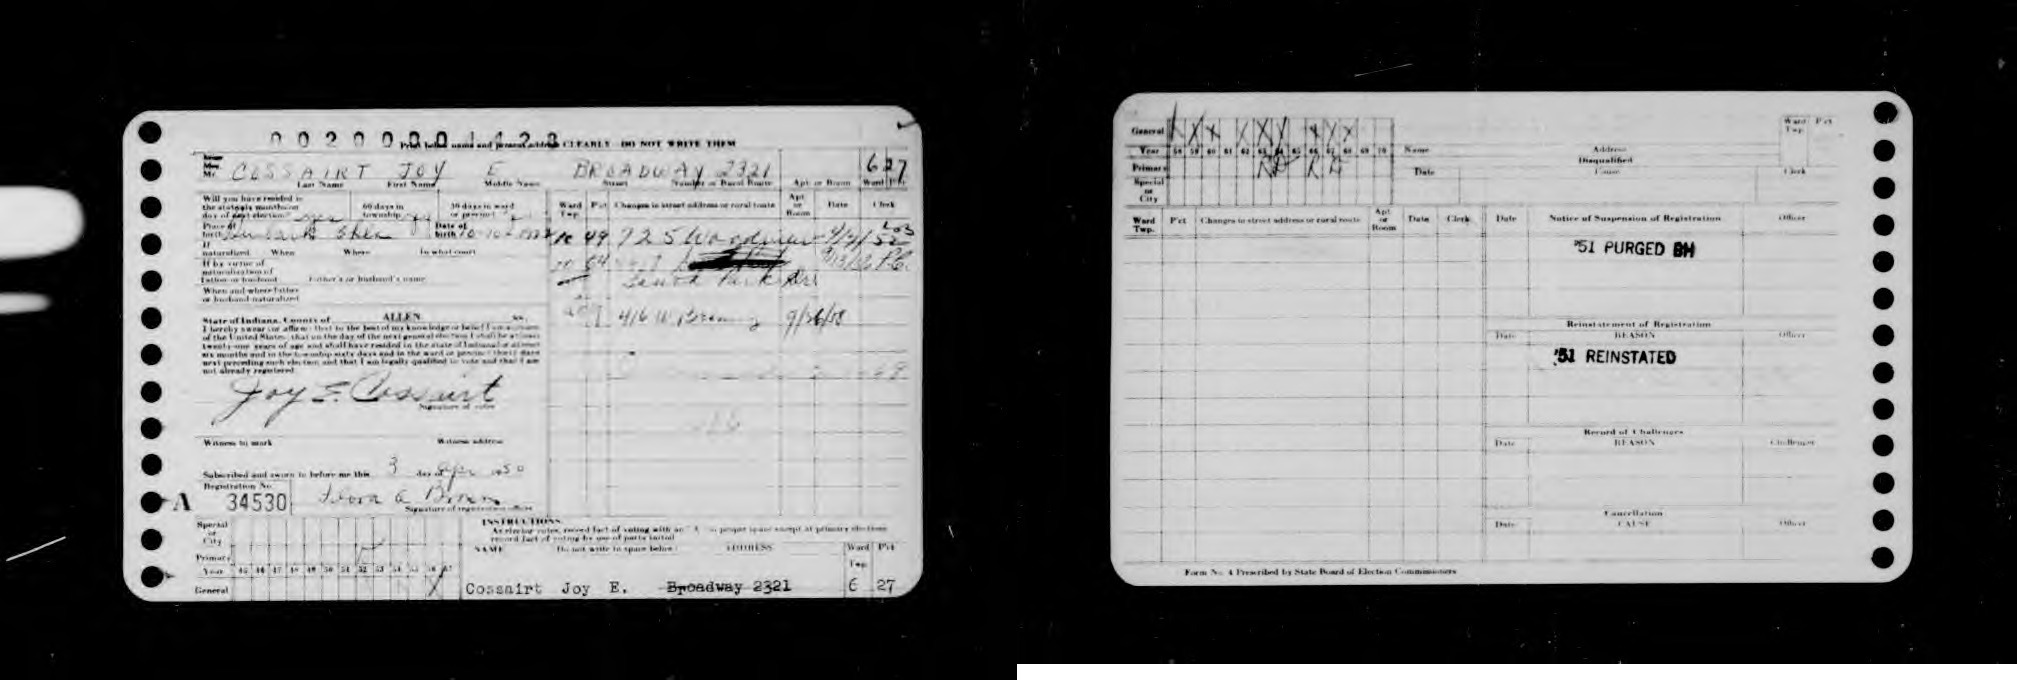 0020000 1428
Print below name and present address CLEARLY - DO NOT WRITE THEM
Miss
Mrs.
Mr. COSSAIRT JOY E BROADWAY 2321 6 27
Last Name First Name Middle Name Street Number or Rural Route Apt or Room Ward Pct
Will you have resided in
the state six months on
day of next election? yes
60 days in
township
30 days in ward
or precinct
Place of
birth
Date of
birth 10-10-
If
naturalized When Where In what court
If by virtue of
naturalization of
father or husband Father's or husband's name
When and where father
or husband naturalized
State of Indiana, County of ALLEN ss.
I hereby swear (or affirm) that to the best of my knowledge or belief I am a citizen
of the United States; that on the day of the next general election I shall be at least
twenty-one years of age and shall have resided in the state of Indiana for at least
six months and in the township sixty days and in the ward or precinct thirty days
next preceding such election and that I am legally qualified to vote and that I am
not already registered.
Joy E. Cossairt
Signature of voter
Witness to mark Witness address
Subscribed and sworn to before me this 3 day of Apr 1950
Registration No.
A 34530
Signature of registration officer
Ward
Twp. Pct Changes in street address or rural route Apt
or
Room Date Clerk
49 725 Woodview
64
Park Dr
416 W. 9/26/58
Special
or
City
Primary
Year 45 46 47 48 49 50 51 52 53 54 55 56 57
General X
INSTRUCTIONS
As electors votes, record fact of voting with an "X" in proper space except at primary elections
record fact of voting by use of party initial
NAME Do not write in space below: ADDRESS Ward
Twp Pct
Cossairt Joy E. Broadway 2321 6 27
General X X X X X X X X X
Year 58 59 60 61 62 63 64 65 66 67 68 69 70
Primary R D R D
Special
or
City
Name Address Ward
Twp. Pct
Disqualified
Date Cause Clerk
Ward
Twp. Pct Changes in street address or rural route Apt
or
Room Date Clerk
Date Notice of Suspension of Registration Officer
'51 PURGED BH
Reinstatement of Registration
Date REASON Officer
'51 REINSTATED
Record of Challenges
Date REASON Challenger
Cancellation
Date CAUSE Officer
Form No. 4 Prescribed by State Board of Election Commissioners